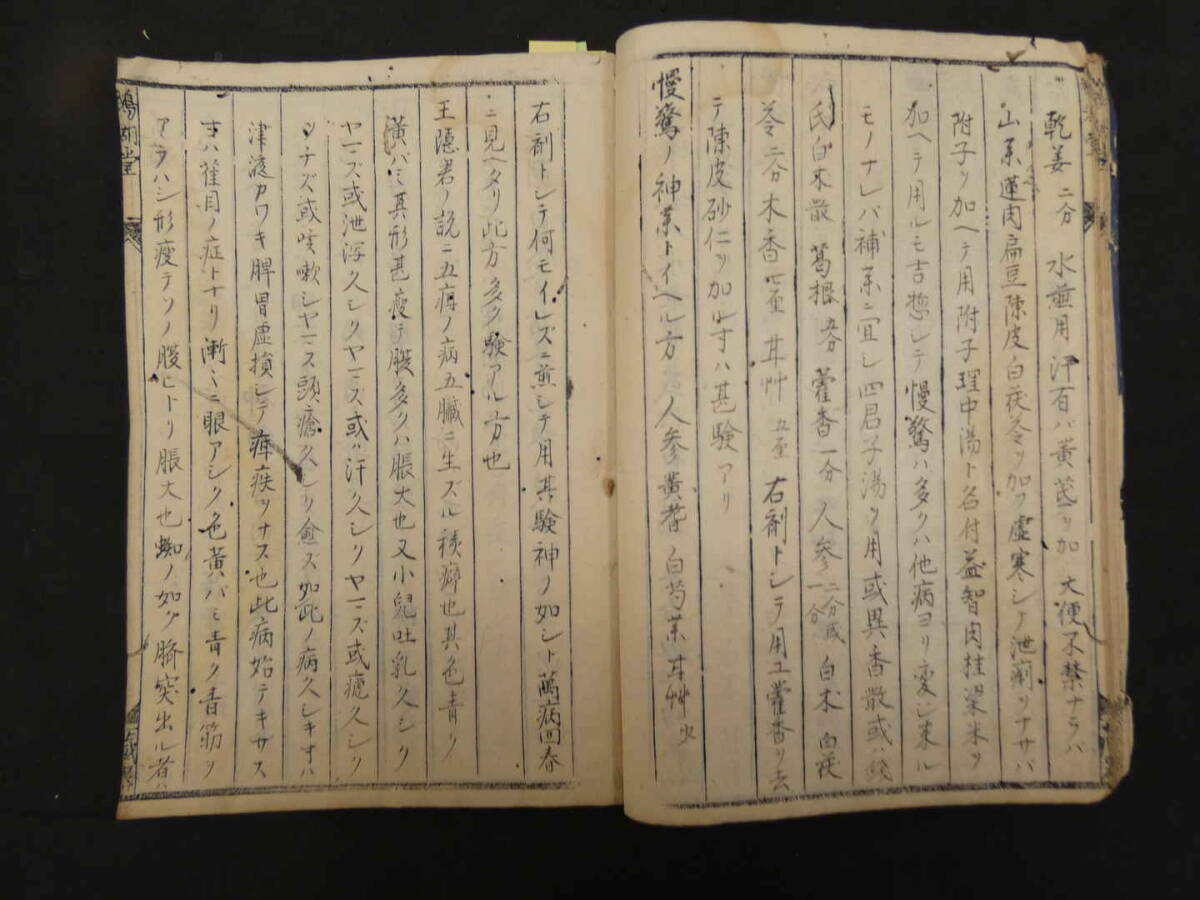 乾姜 二分 水煎用 汗有バ黄芪ヲ加 大便不禁ナラバ
山薬蓮肉扁豆陳皮白茯苓ヲ加フ虚寒シテ泄痢ヲナサバ
附子ヲ加ヘテ用附子理中湯ト名付益智肉桂粱米ヲ
加ヘテ用ルモ吉惣シテ慢驚ハ多クハ他病ヨリ変ジ来ル
モノナレバ補薬ニ宜シ四君子湯ヲ用或異香散或ハ銭
氏白朮散 葛根 五分 藿香一分 人参 二分或一分 白朮 白茯
苓二分木香 甘艸 右剤トシテ用ユ藿香ヲ去
テ陳皮砂仁ヲ加ル寸ハ甚験アリ
慢驚ノ神薬トイヘル方 人参黄耆白芍薬甘艸少
右剤トシテ何モイレズニ煎シテ用其験神ノ如シト萬病回春
ニ見ヘタリ此方多ク験アル方也
王隠君ノ説ニ五疳ノ病五臓ニ生ズル積癖也其色青ク
黄バミ其形甚痩テ腹多クハ脹大也又小兒吐乳久シク
ヤマズ或泄瀉久シクヤマズ或ハ汗久シクヤマズ或瘧久シク
シナズ或咳嗽シヤマス頭瘡久シク愈ズ如此ノ病久シキ寸ハ
津液カワキ脾胃虚損シテ疳疾ヲナス也此病始テキザス
寸ハ雀目ノ症トナリ漸々ニ眼アシク色黄バミ青ク青筋ヲ
アラハシ形痩テソノ腹ヒトリ脹大也蜘ノ如ク臍突出ル者ハ